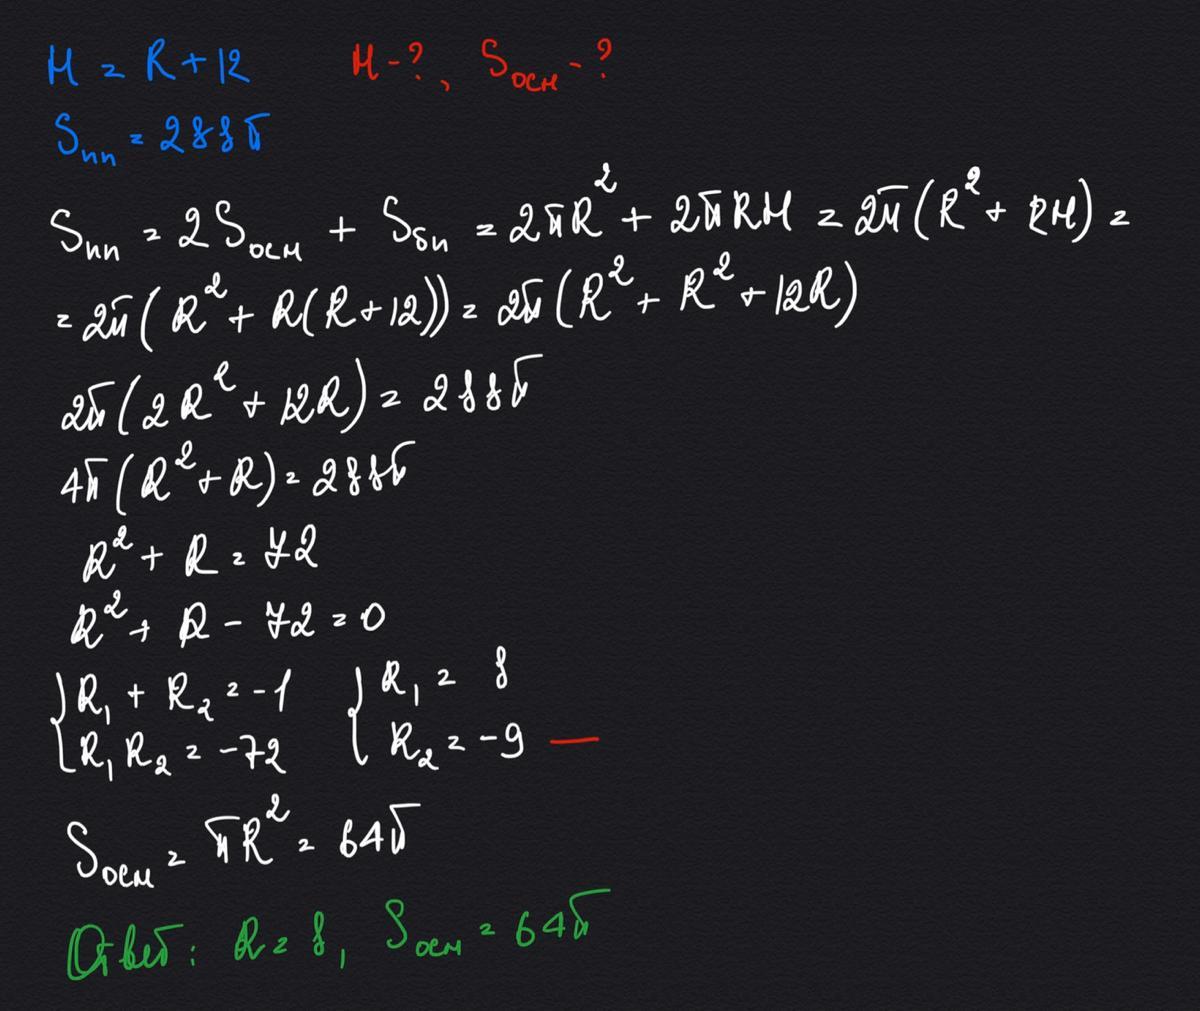 H = R + 12 H - ?, Sосн - ?
Sпп = 288π
Sпп = 2Sосн + Sбп = 2πR² + 2πRH = 2π(R² + RH) =
= 2π(R² + R(R+12)) = 2π(R² + R² + 12R)
2π(2R² + 12R) = 288π
4π(R² + R) = 288π
R² + R = 72
R² + R - 72 = 0
{ R₁ + R₂ = -1 { R₁ = 8
{ R₁R₂ = -72 { R₂ = -9 —
Sосн = πR² = 64π
Ответ: R = 8, Sосн = 64π